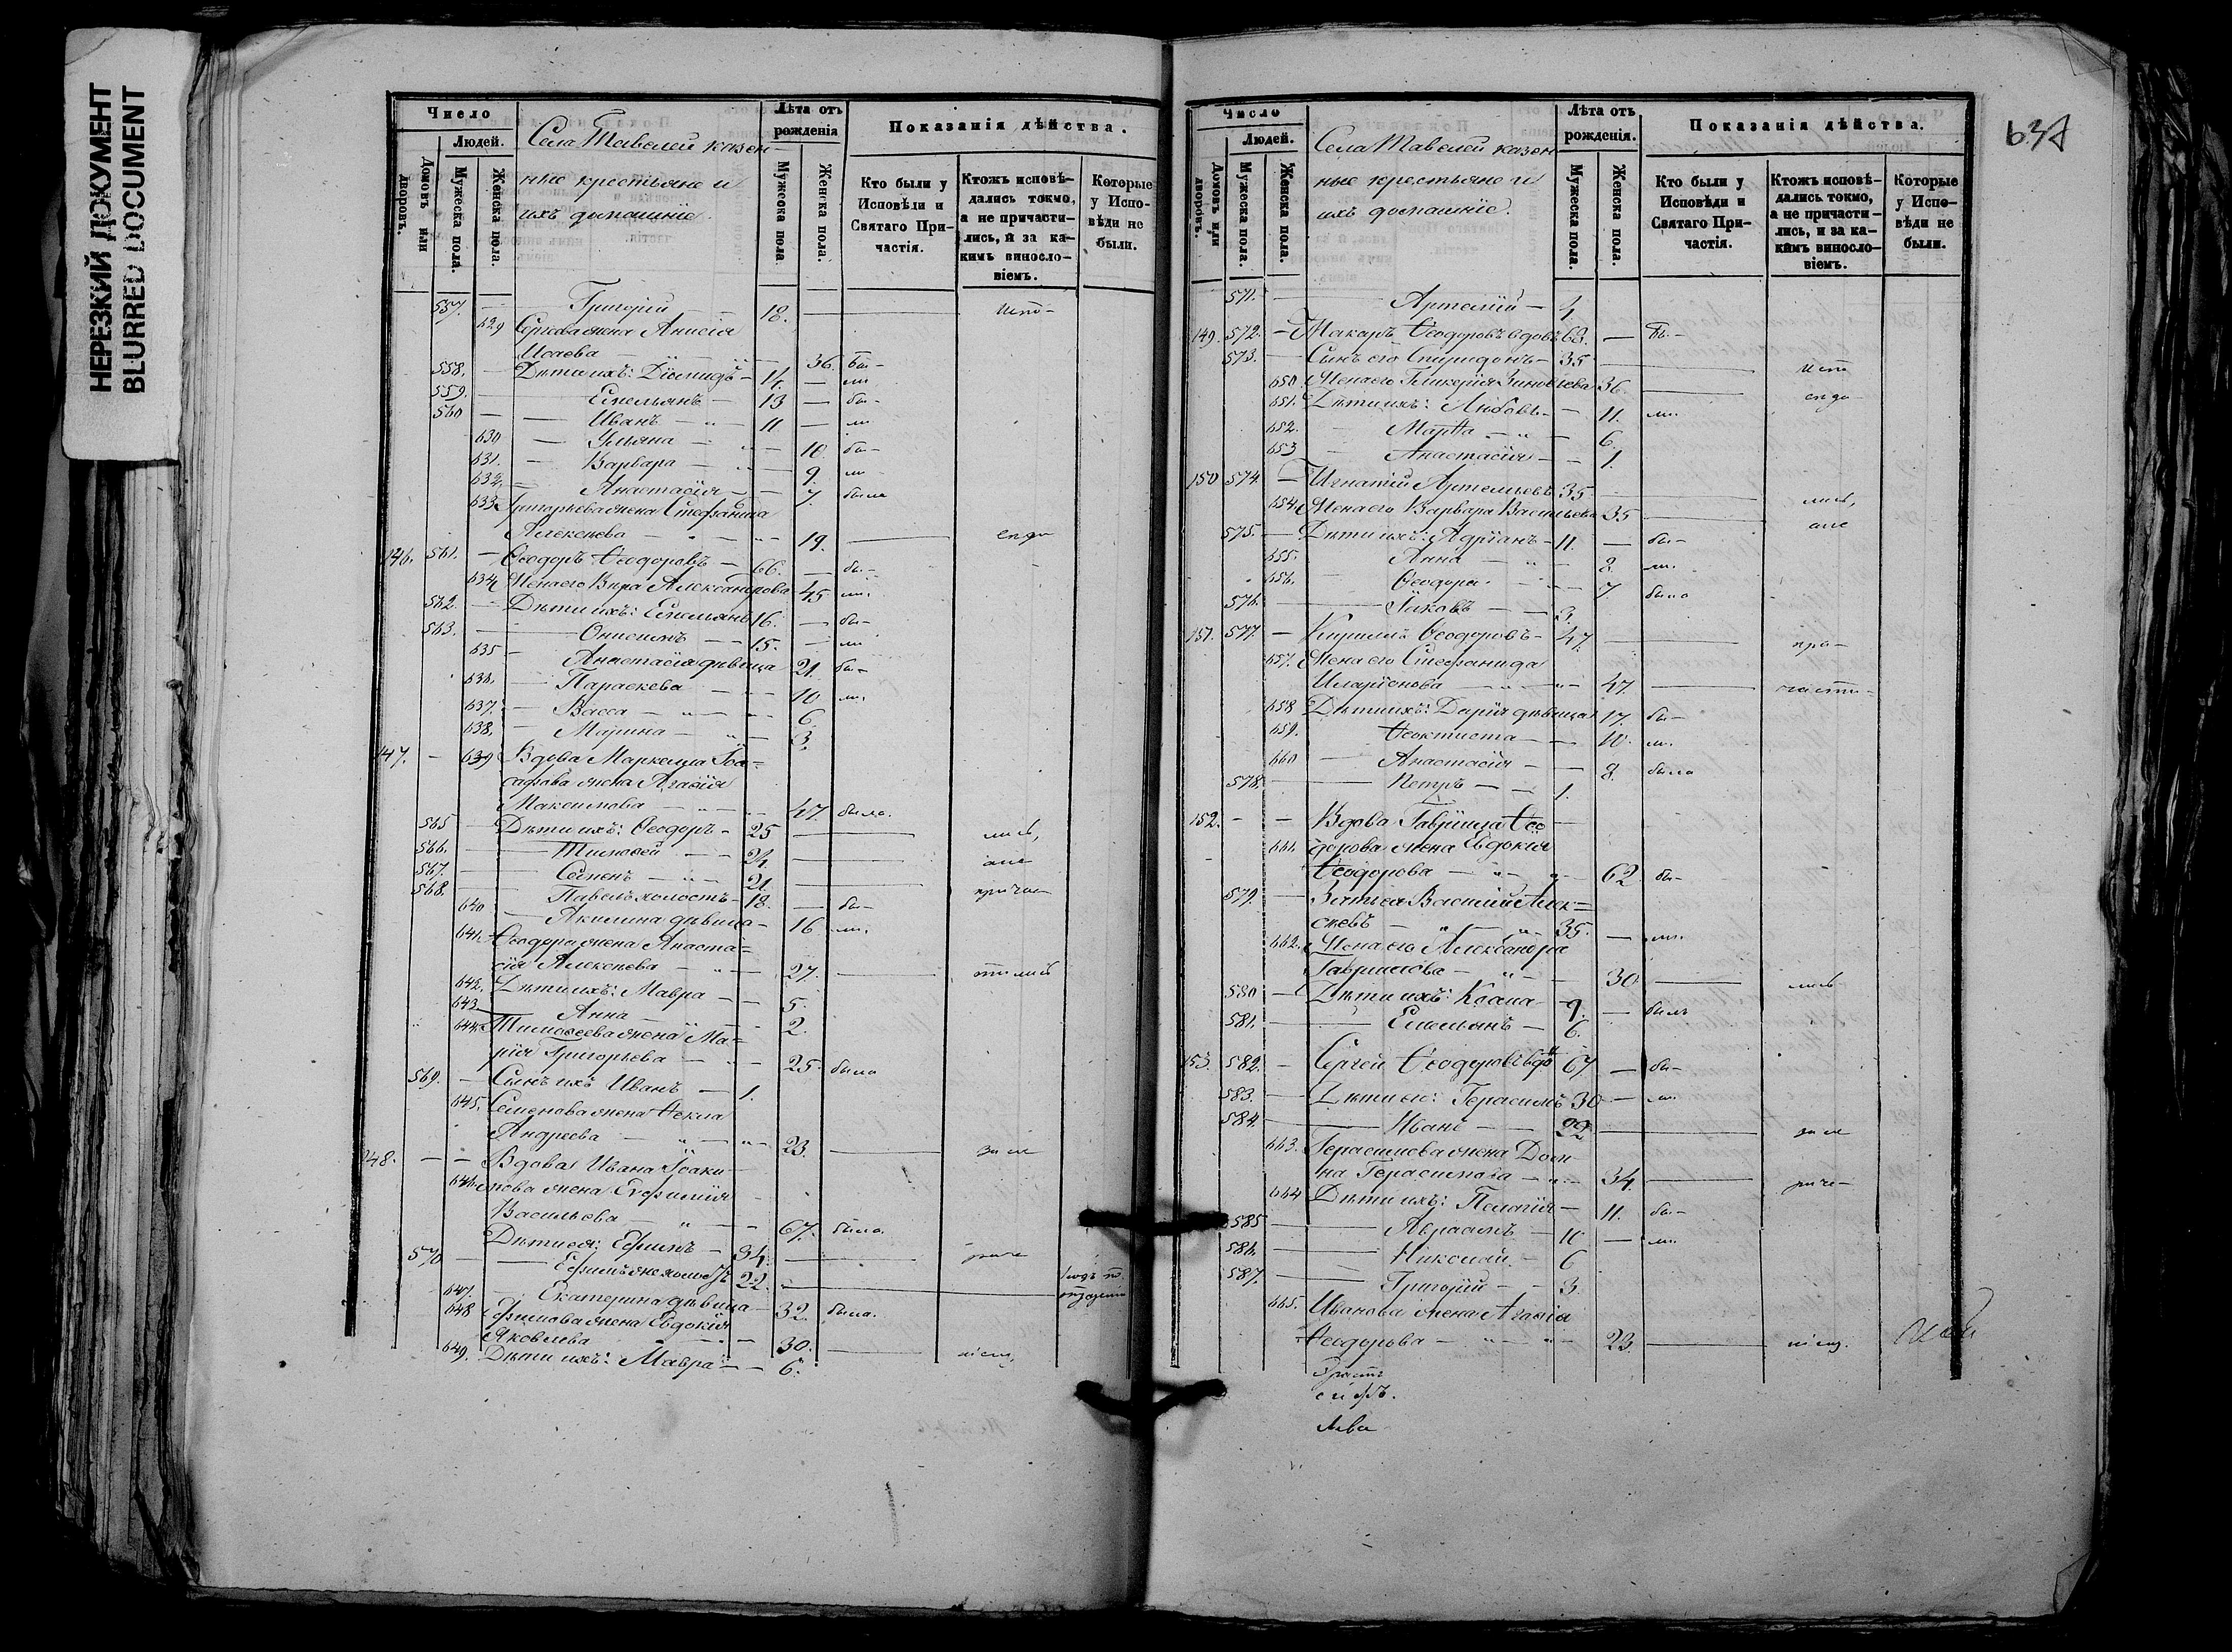 НЕРЕЗКИЙ ДОКУМЕНТ
BLURRED DOCUMENT
Число
Людей.
Домовъ или дворовъ.
Мужеска пола.
Женска пола.
Села Тавелей казен-
ные крестьяне и
ихъ домашніе.
Лѣта отъ рожденія
Мужска пола
Женска пола.
Показанія дѣйства.
Кто были у Исповѣди и Святаго Причастія.
Ктожъ исповѣдались токмо, а не причастились, и за какимъ винословіемъ.
Которые у Исповѣди не были.
557. — Григорій — 18. — испо-
629 жена Анисія
Исаева — 36. бы-
558. — Дѣти ихъ: — 14. — ли
559. — Емельянъ — 13 — бы-
560 — — Иванъ — 11 — ли
630 — Ульяна — 10. бы-
631. — Варвара — 9. ли
632. — Анастасія — 7. была
633 Григорьева жена Стефанида
Алексѣева — 19. —
146. 561. — Ѳеодоръ Ѳеодоровъ — 66. — бы-
634 Жена его Вѣра Александрова 45 ли.
562. — Дѣти ихъ: Емельянъ 16. — бы-
563. — Онисимъ — 15. — ли
635 — Анастасія дѣвица 21. бы-
636. — Параскева — 10 ли.
637. — Васса — 6
638. — Марина — 3.
147. — 639 Вдова
жена Агаѳія
Максимова — 47. была.
565 — Дѣти ихъ: Ѳеодоръ — 25 — лись,
566. — Тимоѳей — 24. —
567. — Семенъ — 21. —
568. — Павелъ холостъ — 18. — бы-
640 — Акилина дѣвица — 16 ли.
641. Ѳеодора жена Анаста-
сія Алексѣева — 27. —
642. Дѣти ихъ: Мавра — 5.
643 — Анна — 2.
644. Тимоѳеева жена Ма-
рія Григорьева — 25. была
569. — Сынъ ихъ Иванъ — 1.
645. Семенова жена Ѳекла
Андреева — 23. —
148. — — Вдова Ивана Іоаки-
646. мова жена Евфимія
Васильева — 67. была.
Дѣти ея: Ефимъ — 34. —
570 — 22. —
647. — Екатерина дѣвица — 32. была.
648 Ефимова жена Евдокія
Яковлева — 30. —
649. Дѣти ихъ: Мавра — 6.
637
Число
Людей.
Домовъ или дворовъ.
Мужеска пола.
Женска пола.
Села Тавелей казен
ные крестьяне и
ихъ домашніе.
Лѣта отъ рожденія.
Мужеска пола.
Женска пола.
Показанія дѣйства.
Кто были у Исповѣди и Святаго Причастія.
Ктожъ исповѣдались токмо, а не причастились, и за какимъ винословіемъ.
Которые у Исповѣди не были.
571. — Артемій — 4
149. 572. — Макаръ Ѳеодоровъ вдовъ 68. — бы-
573. — Сынъ его Спиридонъ — 35 — испо
650 Жена его Гликерія Зиновьева 36. —
651. Дѣти ихъ: Любовь — 11. ли.
652. — Марѳа — 6.
653 — Анастасія — 1.
150 574. — Игнатій Артемьевъ 35 — лись,
654. Жена его Варвара Васильева 35 —
575. — Дѣти ихъ: Адріанъ — 11. — бы-
655. — Анна — 8. ли.
656. — Ѳеодора — 7. была
576. — Іаковъ — 3.
151. 577. — Кириллъ Ѳеодоровъ — 47. — при-
657. Жена его Стефанида
Иларіонова — 47. — части-
658 Дѣти ихъ: Дарія дѣвица 17. бы-
659. — Ѳеоктиста — 10. ли.
660 — Анастасія — 8. была
578. — Петръ — 1.
152. — — Вдова Гавріила Ѳео
661. дорова жена Евдокія
Ѳеодорова — 62. бы-
579. — Зять ея Василій Алек-
сѣевъ — 35. — ли.
662. Жена его Александра
Гавриилова — 30 — лись
580 — Дѣти ихъ: Козма — 9. — былъ
581. — Емельянъ — 6.
153. 582. — Сергей Ѳеодоровъ вдов 67 — бы-
583. — Дѣти его: Герасимъ 30 — ли.
584. — Иванъ — 22 —
663. Герасимова жена Дом-
на Герасимова — 34. —
664 Дѣти ихъ: Пелагія — 11. бы-
585 — Авраамъ — 10 — ли.
586. — Николай — 6
587. — Григорій — 3.
665. Иванова жена Агаѳія
Ѳеодорова — 23. —